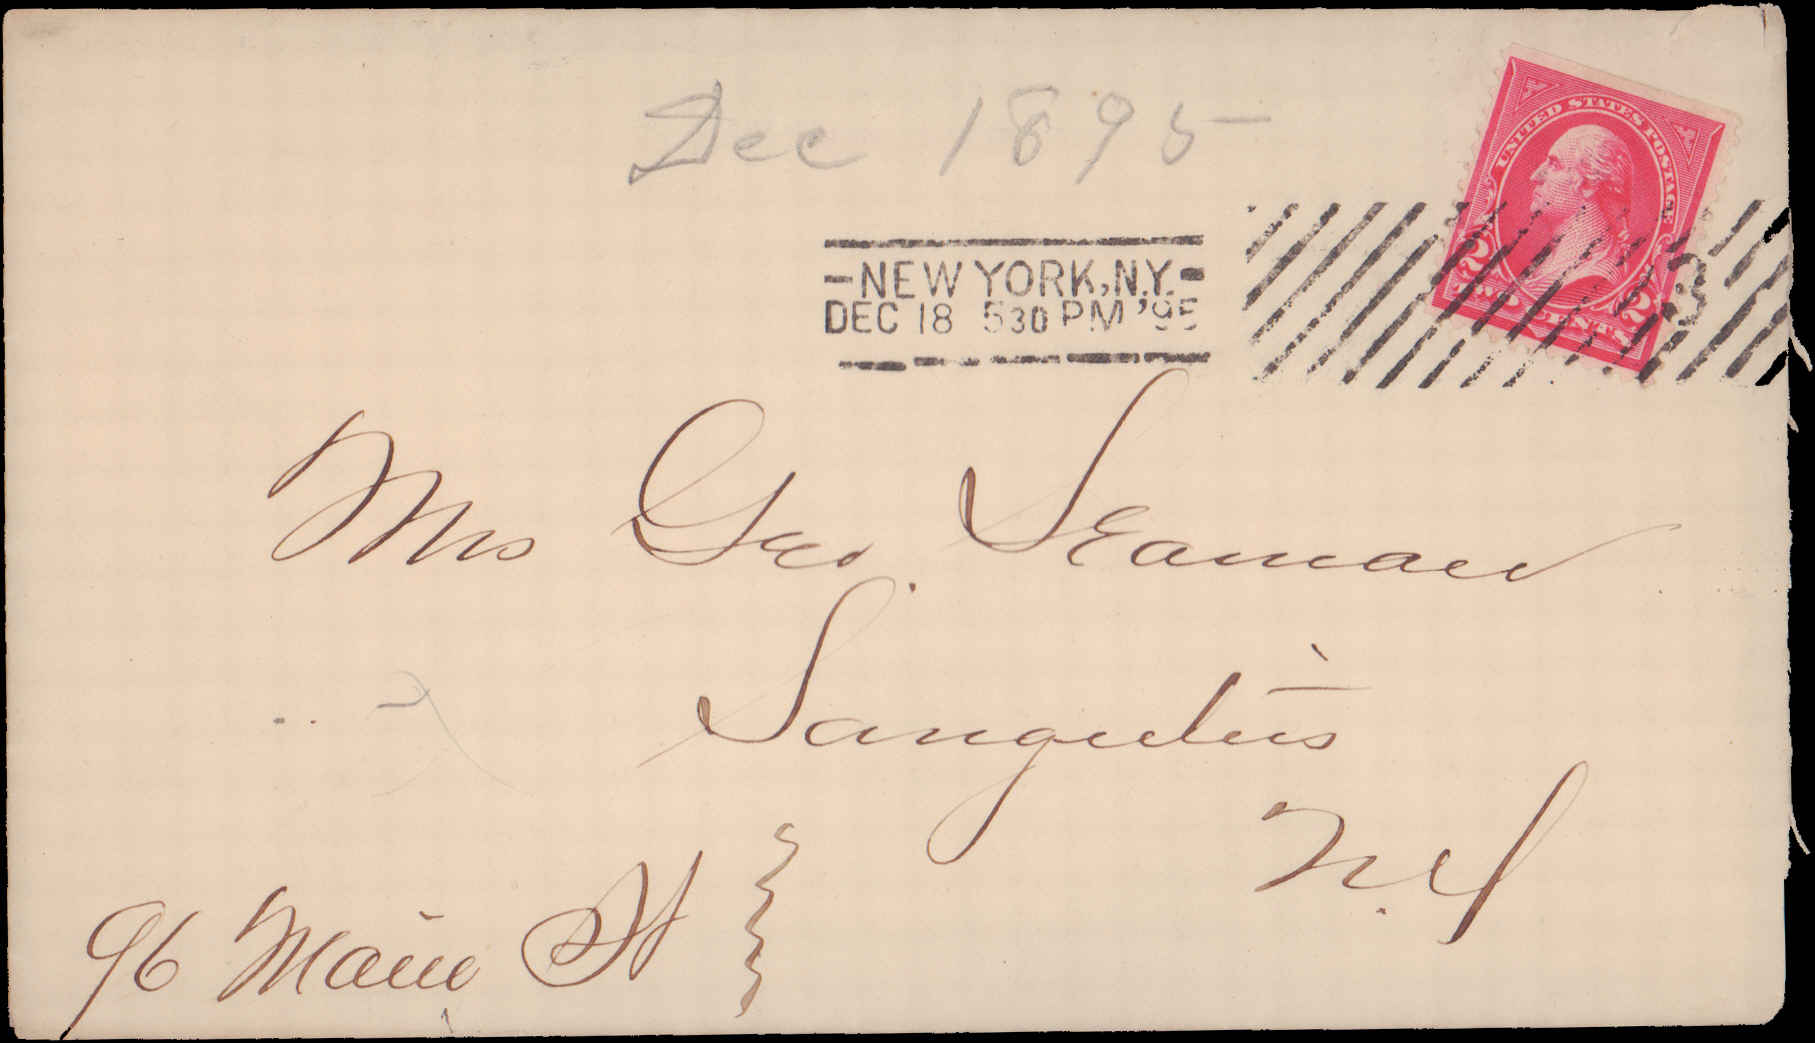 Dec 1895
UNITED STATES POSTAGE
2 2
TWO CENTS
-NEW YORK, N.Y.-
DEC 18 530 PM '95
3
Mrs Geo. Seaman
Saugerties
N.Y
96 Main St